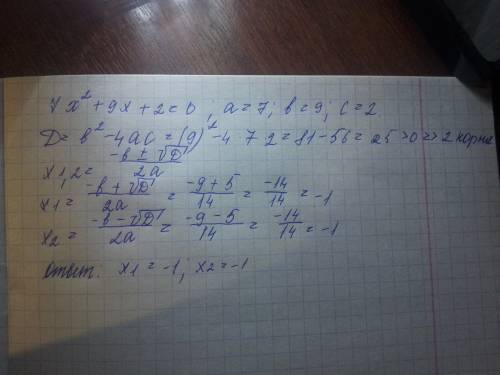 7x² + 9x + 2 = 0 ; a = 7; в = 9; c = 2
D = в² - 4ac = (9)² - 4 7 2 = 81 - 56 = 25 > 0 => 2 корня
x1,2 = (-в ± √D) / 2a
x1 = (-в + √D) / 2a = (-9 + 5) / 14 = -14 / 14 = -1
x2 = (-в - √D) / 2a = (-9 - 5) / 14 = -14 / 14 = -1
Ответ: x1 = -1; x2 = -1